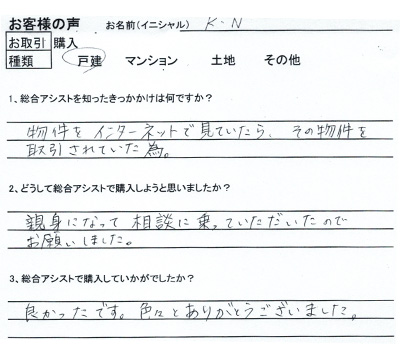 お客様の声 お名前(イニシャル) K・N
お取引 購入
種類 戸建 マンション 土地 その他
1、総合アシストを知ったきっかかけは何ですか?
物件をインターネットで見ていたら、その物件を
取引されていた為。
2、どうして総合アシストで購入しようと思いましたか?
親身になって相談に乗っていただいたので
お願いしました。
3、総合アシストで購入していかがでしたか?
良かったです。色々とありがとうございました。